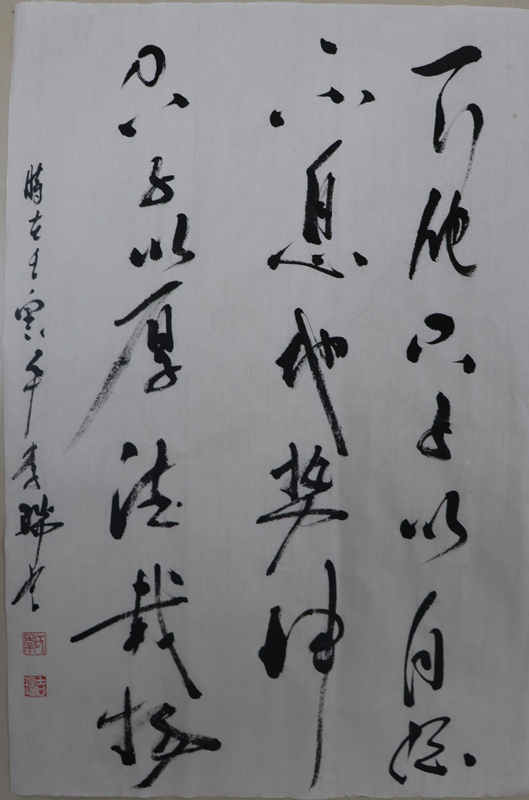 天行健君子以自强
不息地势坤
君子以厚德载物
時在壬寅年李瑞书